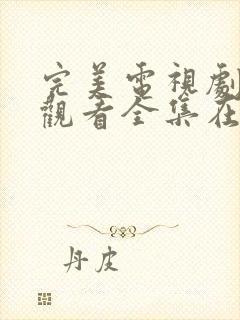 完美電視劇
觀看全集在
丹皮